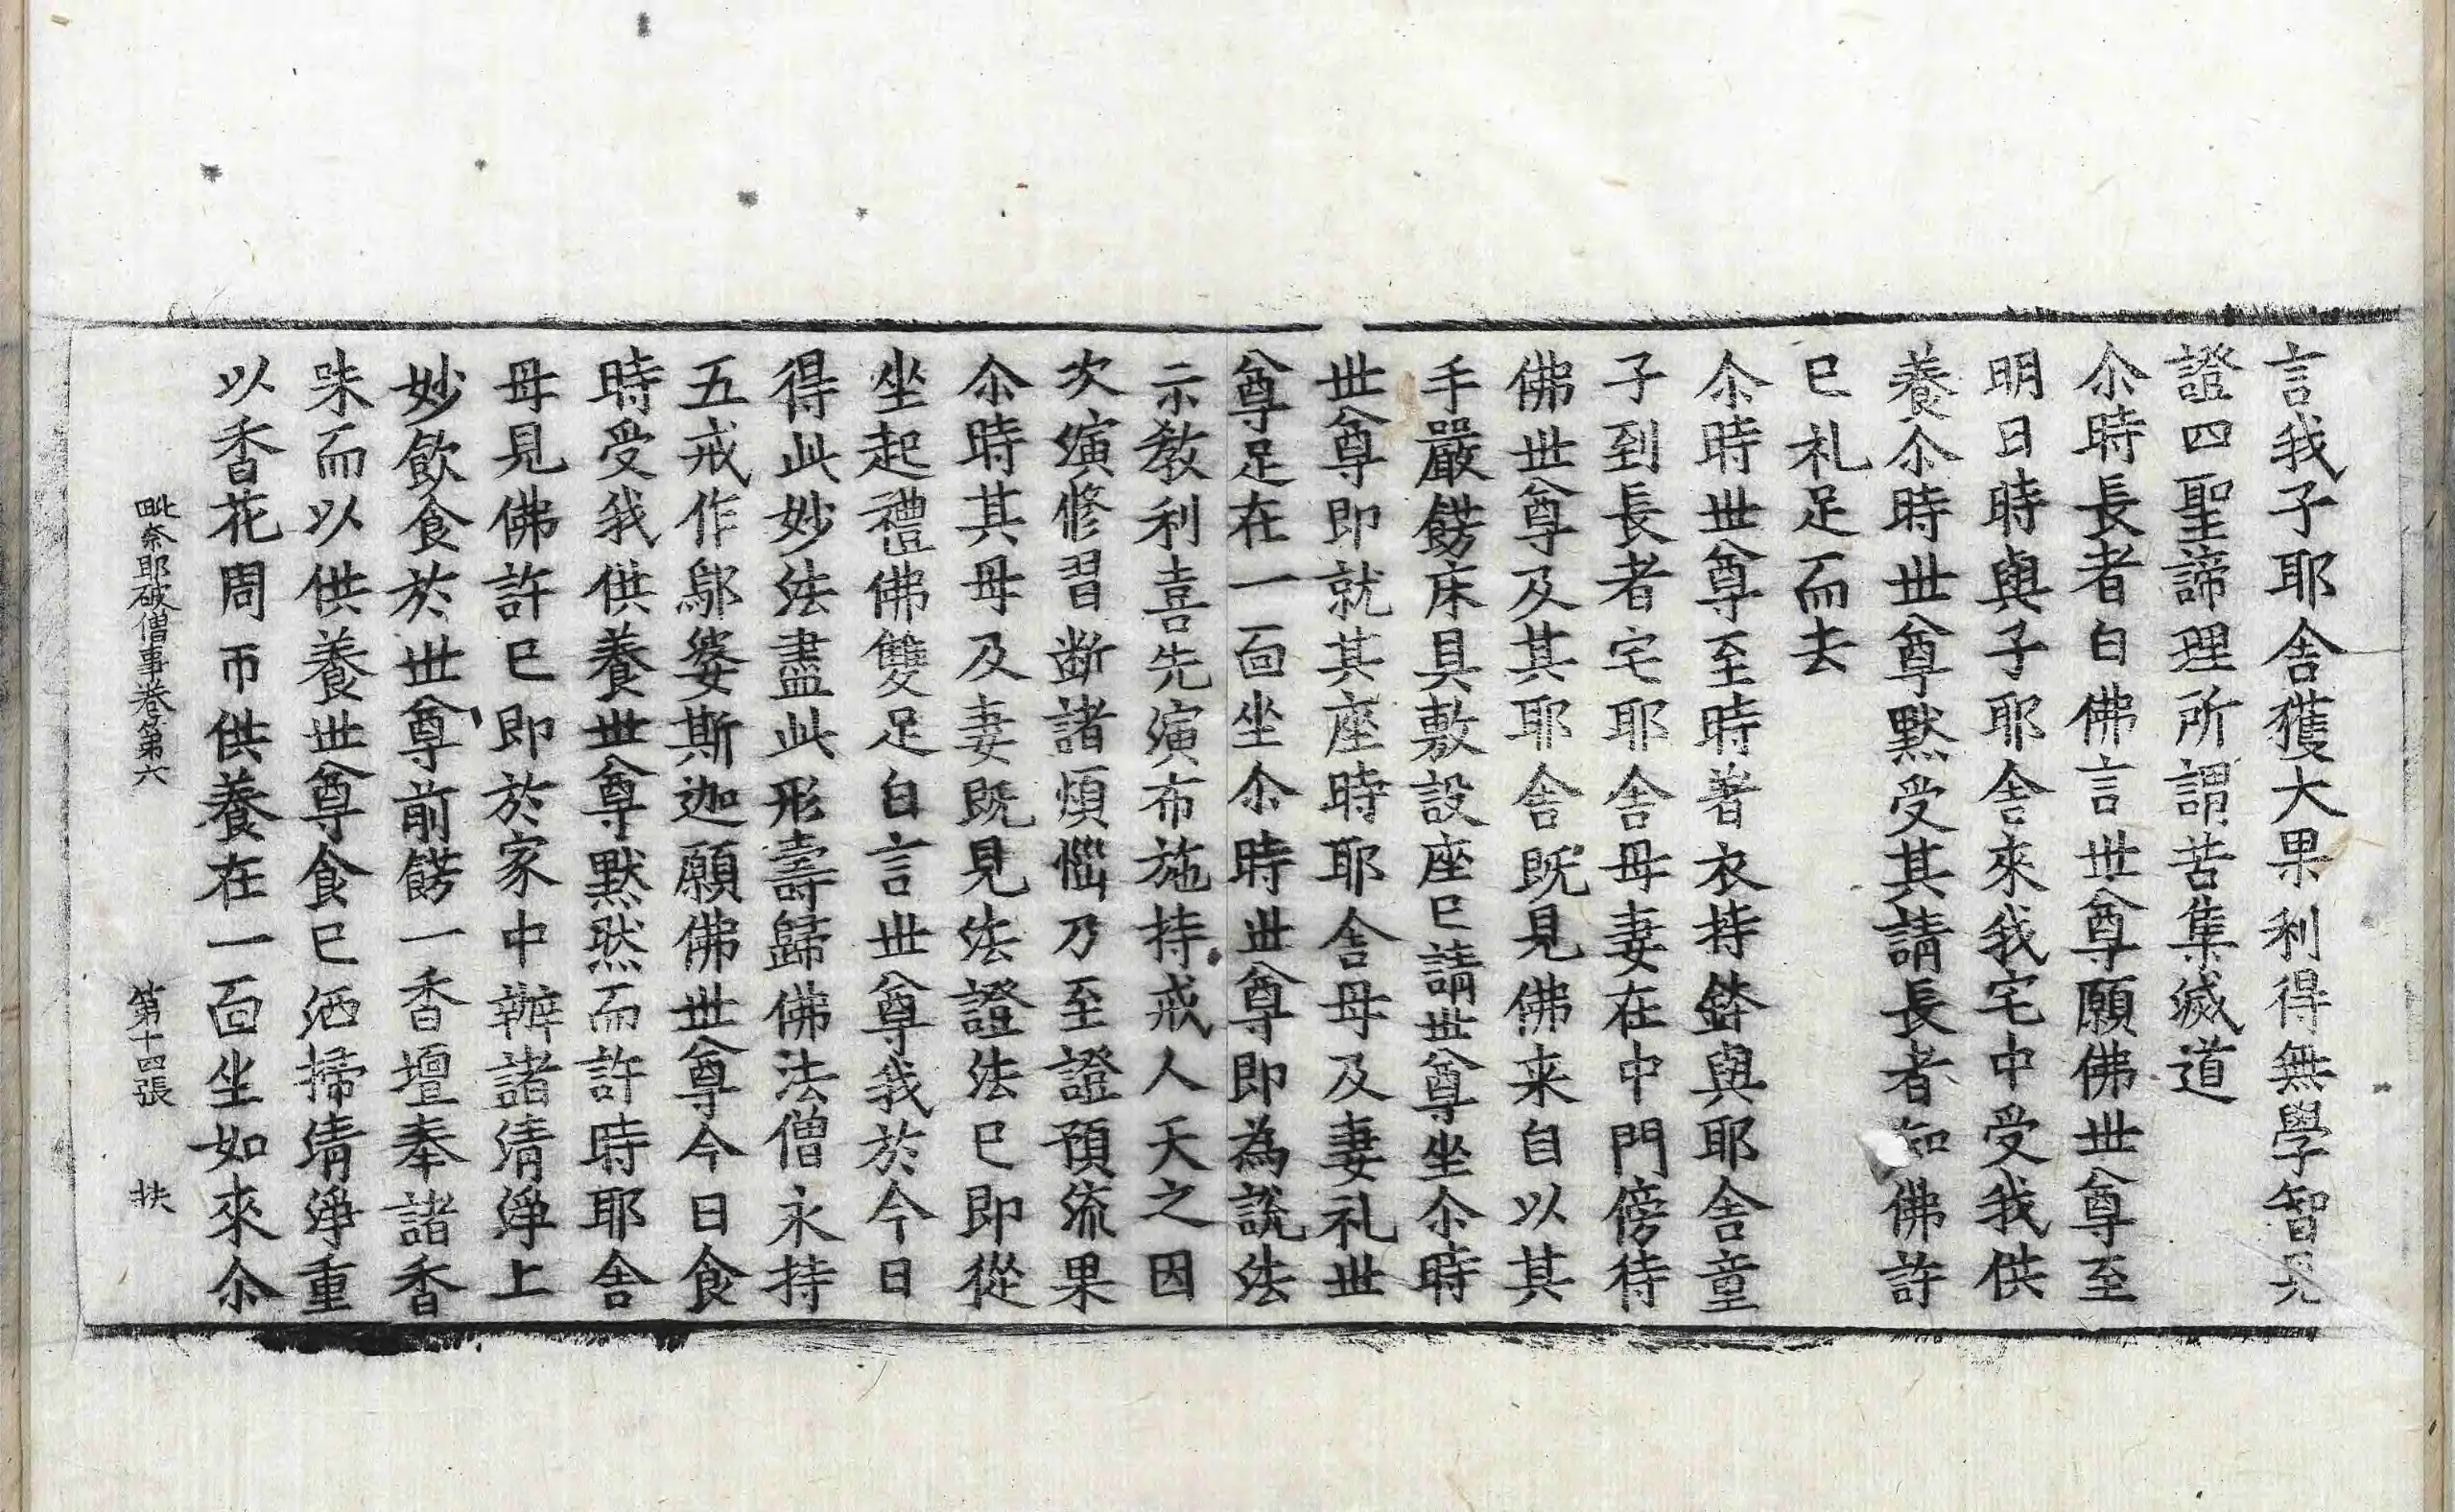 言我子耶舍獲大果利得無學智見
證四聖諦理所謂苦集滅道
尒時長者白佛言世尊願佛世尊至
明日時與子耶舍來我宅中受我供
養尒時世尊黙受其請長者知佛許
已礼足而去
尒時世尊至時著衣持鉢與耶舍童
子到長者宅耶舍母妻在中門傍待
佛世尊及其耶舍既見佛来自以其
手嚴餝床具敷設座已請世尊坐尒時
世尊即就其座時耶舍母及妻礼世
尊足在一面坐尒時世尊即為說法
示教利喜先演布施持戒人天之因
次演修習斷諸煩惱乃至證預流果
尒時其母及妻既見法證法已即從
坐起禮佛雙足白言世尊我於今日
得此妙法盡此形壽歸佛法僧永持
五戒作鄔婆斯迦願佛世尊今日食
時受我供養世尊黙然而許時耶舍
母見佛許已即於家中辦諸清淨上
妙飲食於世尊前餝一香壇奉諸香
味而以供養世尊食已洒掃清淨重
以香花周帀供養在一面坐如來尒
毗奈耶破僧事卷第六 第十四張 扶